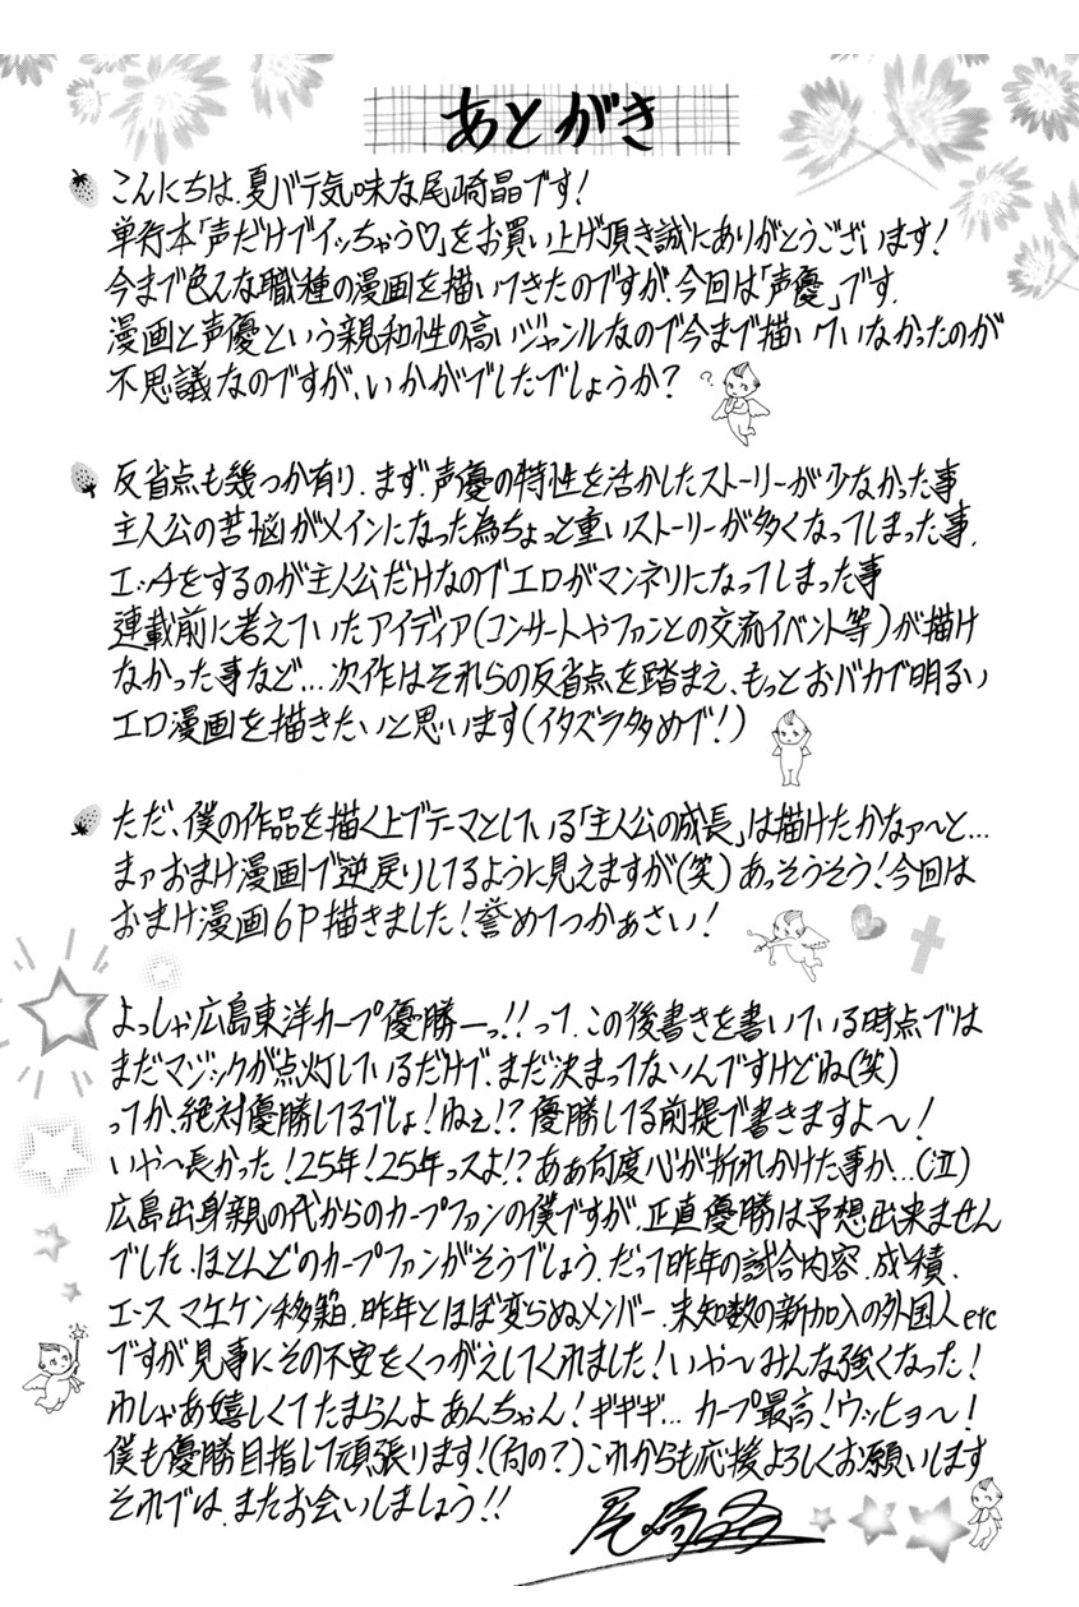 あとがき
こんにちは、夏バテ気味な尾崎晶です!
単行本「声だけでイッちゃう♡」をお買い上げ頂き誠にありがとうございます!
今まで色んな職種の漫画を描いてきたのですが、今回は「声優」です.
漫画と声優という親和性の高いジャンルなので今まで描いていなかったのが
不思議なのですが、いかがでしたでしょうか?
?
反省点も幾つか有り、まず、声優の特性を活かしたストーリーが少なかった事、
主人公の苦悩がメインになった為ちょっと重いストーリーが多くなってしまった事、
エッチをするのが主人公だけなのでエロがマンネリになってしまった事
連載前に考えていたアイディア(コンサートやファンとの交流イベント等)が描け
なかった事など...次作はそれらの反省点を踏まえ、もっとおバカで明るい
エロ漫画を描きたいと思います(イタズラ多めで!)
ただ、僕の作品を描く上でテーマとしている「主人公の成長」は描けたかなァ〜と...
まァおまけ漫画で逆戻りしてるように見えますが(笑)あっそうそう!今回は
おまけ漫画6P描きました!誉めてつかぁさい!
よっしゃ広島東洋カープ優勝ーっ!!って、この後書きを書いている時点では
まだマジックが点灯しているだけで、まだ決まってないんですけどね(笑)
ってか、絶対優勝してるでしょ!ねぇ!?優勝してる前提で書きますよ〜!
いや〜長かった!25年!25年っスよ!?ああ何度心が折れかけた事か...(泣)
広島出身親の代からのカープファンの僕ですが、正直優勝は予想出来ません
でした、ほとんどのカープファンがそうでしょう、だって昨年の試合内容、成績、
エース マエケン移籍、昨年とほぼ変らぬメンバー、未知数の新加入の外国人etc
ですが見事にその不安をくつがえしてくれました!いや〜みんな強くなった!
わしゃあ嬉しくてたまらんよあんちゃん!ギギギ...カープ最高!ウッヒョ〜!
僕も優勝目指して頑張ります!(何の?)これからも応援よろしくお願いします
それでは、またお会いしましょう!!
尾崎晶